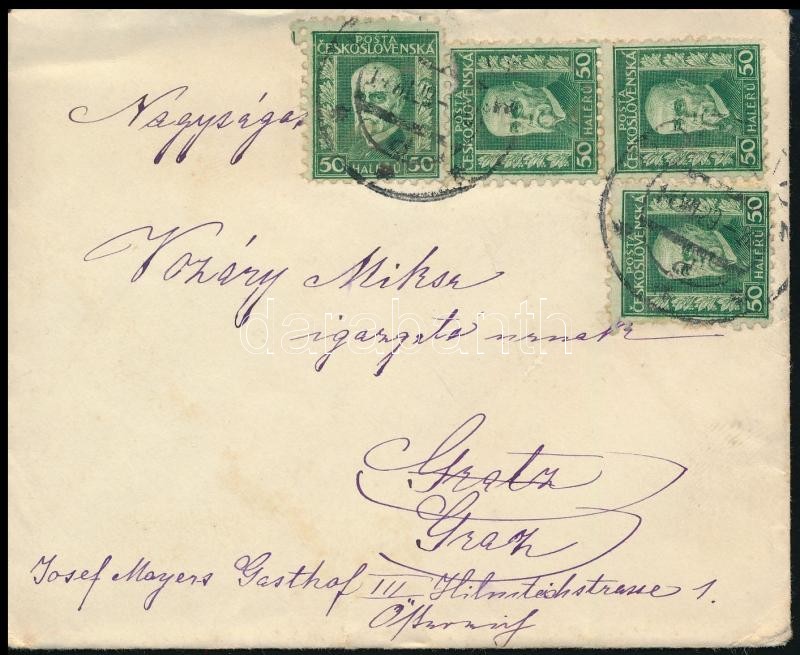 POSTA
ČESKOSLOVENSKÁ
50 HALÉŘŮ 50
POSTA
ČESKOSLOVENSKÁ
50 HALÉŘŮ 50
POSTA
ČESKOSLOVENSKÁ
50 HALÉŘŮ 50
POSTA
ČESKOSLOVENSKÁ
50 HALÉŘŮ 50
Nagyságos
Vozáry Miksa
igazgató urnak
darabanth
Gratz
Graz
Josef Mayers Gasthof III Hilmteichstrasse 1.
Österreich